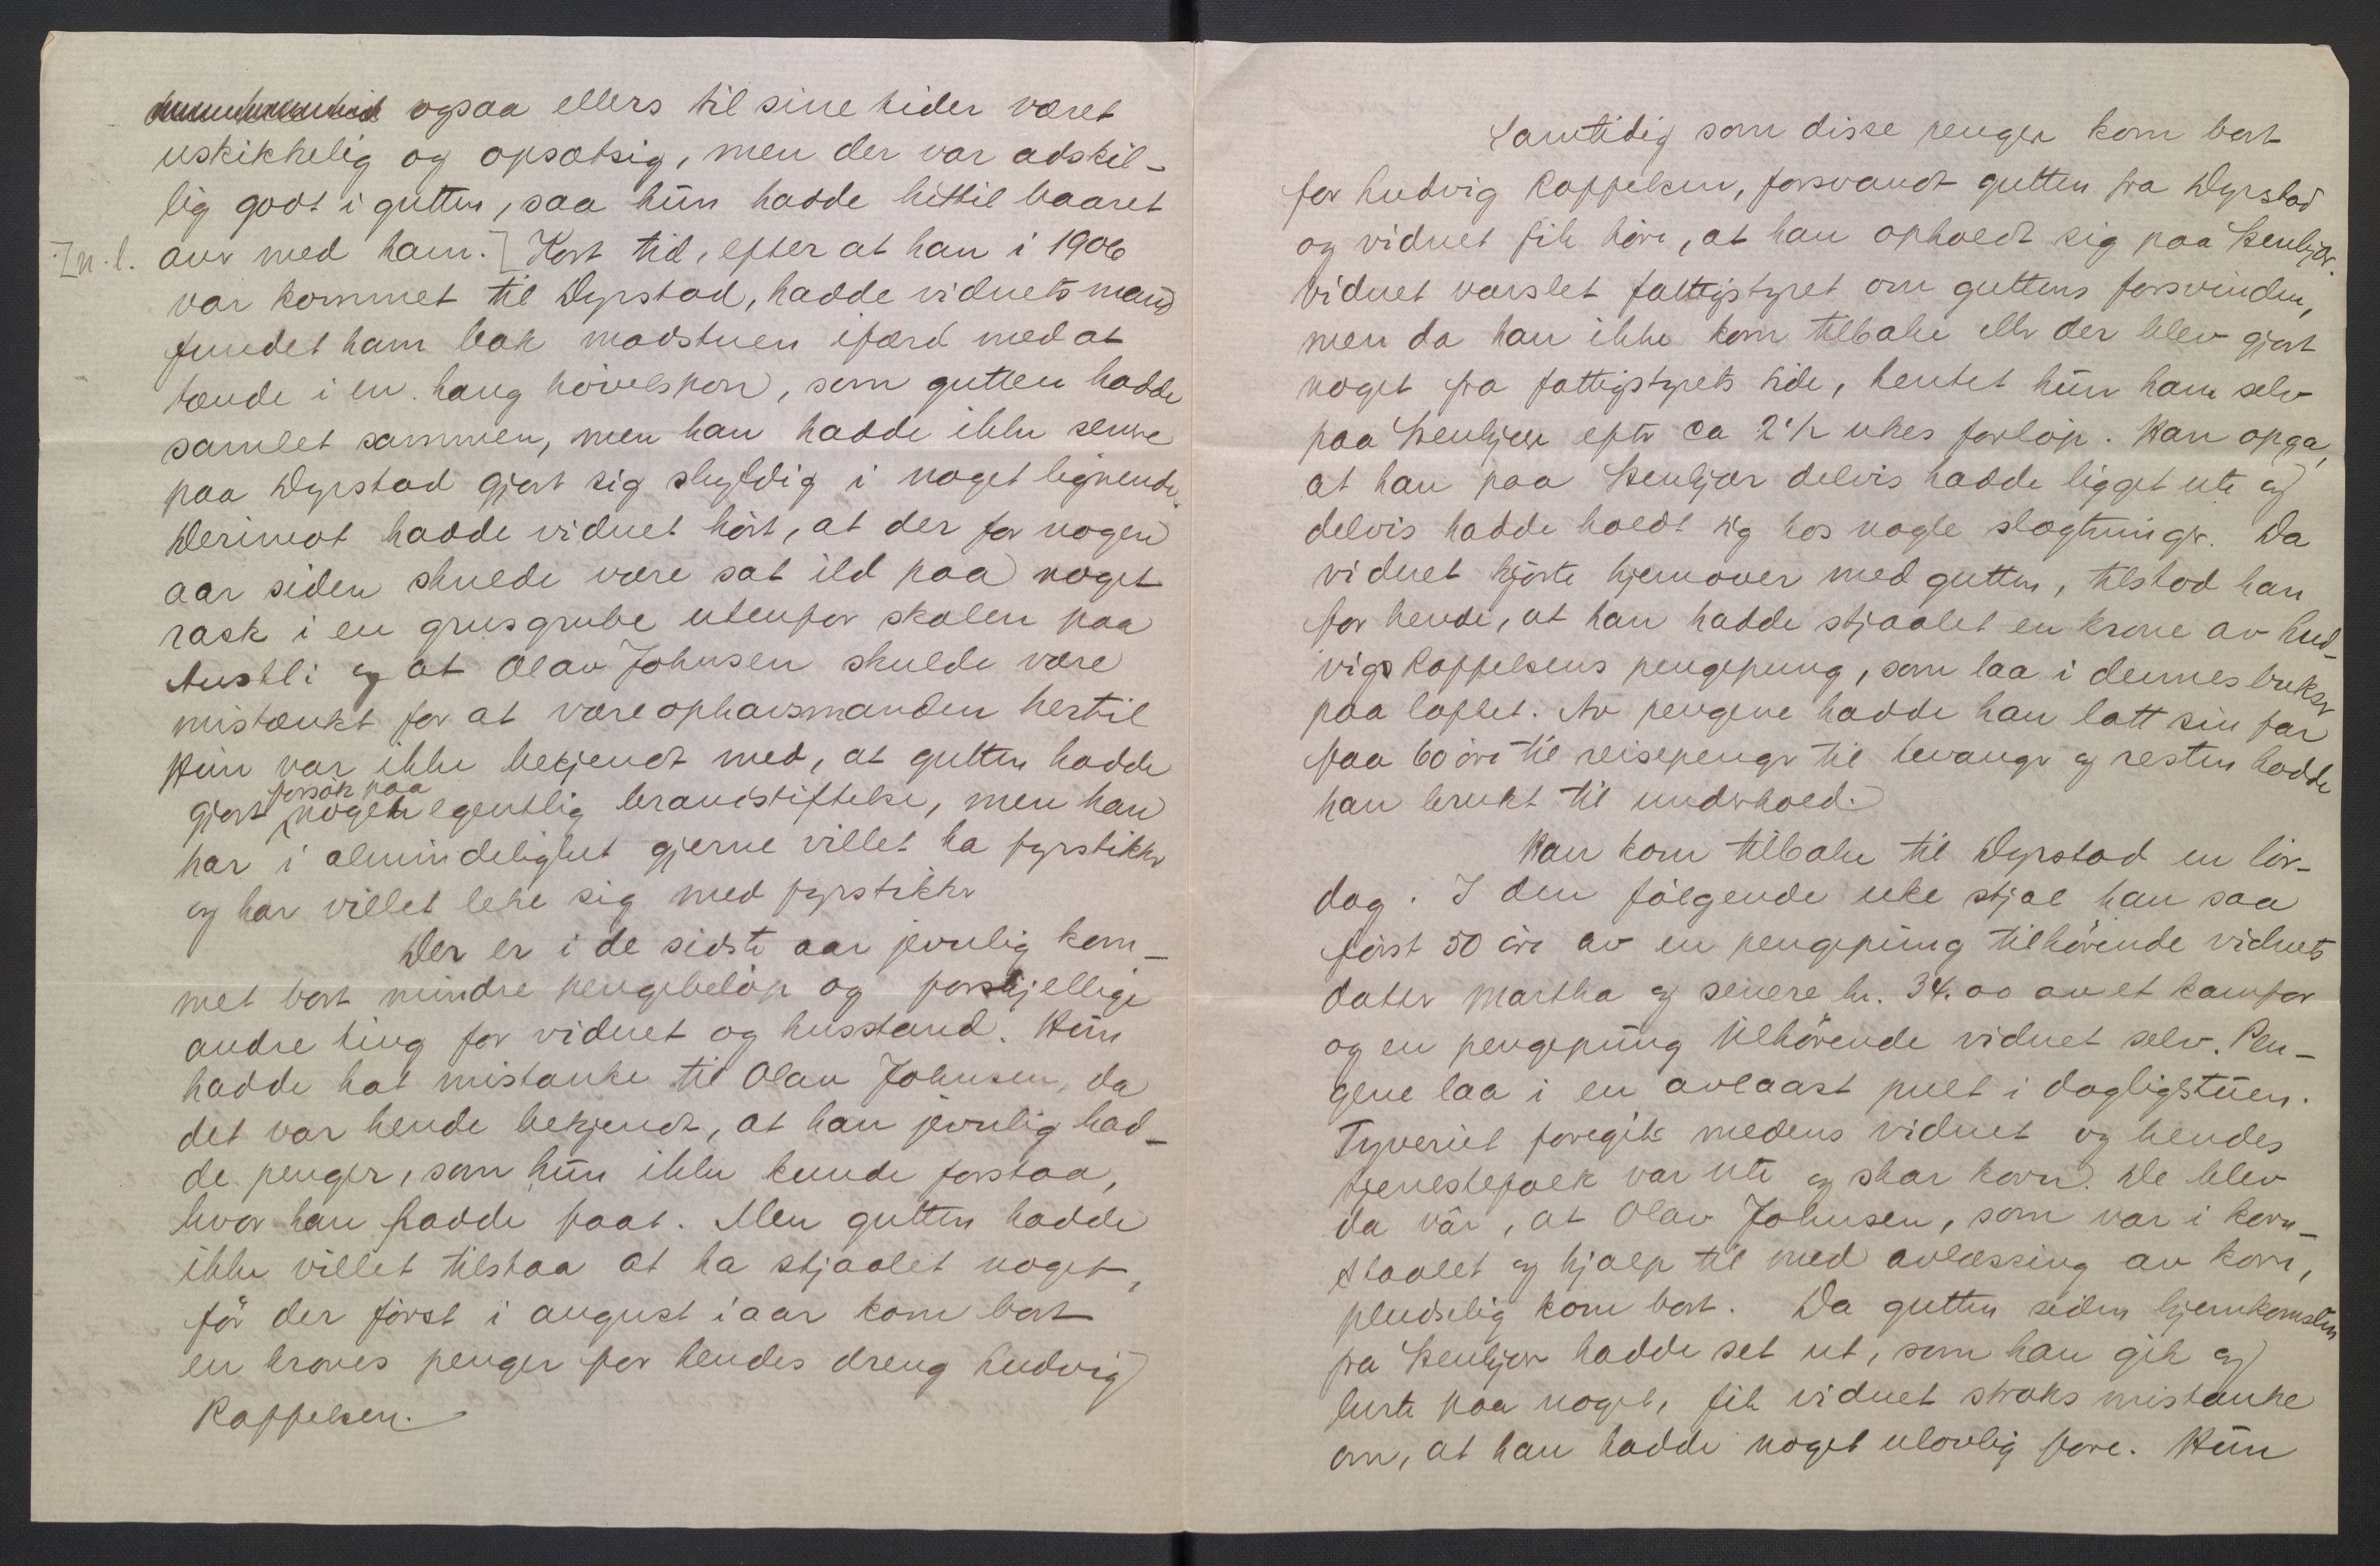 ogsaa ellers til sine tider været
uskikkelig og opsætsig, men der var adskil-
lig godt i gutten, saa hun hadde hittil baaret
[n.l. over med ham.] Kort tid, efter at han i 1906
var kommet til Dyrstad, hadde vidnets mand
fundet ham bak madstuen ifærd med at
tænde i en haug høvelspon, som gutten hadde
samlet sammen, men han hadde ikke senere
paa Dyrstad gjort sig skyldig i noget lignende.
Derimot hadde vidnet hört, at der for nogen
aar siden skulde være sat ild paa noget
rask i en grusgrube utenfor skolen paa
Austli og at Olav Johnsen skulde være
mistænkt for at være ophavsmanden hertil
Hun var ikke bekjendt med, at gutten hadde
forsøk paa
gjort nogen egentlig brandstiftelse, men han
har i almindelighet gjerne villet ha fyrstikker
og har villet leke sig med fyrstikker
Der er i de sidste aar jevnlig kom-
met bort mindre pengebeløp og forskjellige
andre ting for vidnet og husstand. Hun
hadde hat mistanke til Olav Johnsen, da
det var hende bekjendt, at han jevnlig had-
de penger, som hun ikke kunde forstaa,
hvor han hadde faat. Men gutten hadde
ikke villet tilstaa at ha stjaalet noget,
för der först i august iaar kom bort
en krones penger for hendes dreng Ludvig
Koppelsen.
Samtidig som disse penger kom bort
for Ludvig Koppelsen, forsvandt gutten fra Dyrstad
og vidnet fik høre, at han opholdt sig paa Stenkjær.
Vidnet varslet fattigstyret om guttens forsvinden,
men da han ikke kom tilbake eller der blev gjort
noget fra fattigstyrets side, hentet hun ham selv
paa Stenkjær efter ca 2 1/2 ukes forløp. Han opga,
at han paa Stenkjær delvis hadde ligget ute og
delvis hadde holdt sig hos nogle slægtninger. Da
vidnet kjørte hjemover med gutten, tilstod han
for hende, at han hadde stjaalet en krone av Lud-
vigs Koppelsens pengepung, som laa i dennes bukser
paa loftet. Av pengene hadde han latt sin far
faa 60 øre til reisepenger til Levanger og resten hadde
han brukt til underhold.
Han kom tilbake til Dyrstad en lør-
dag. I den følgende uke stjal han saa
først 50 øre av en pengepung tilhørende vidnets
datter Martha og senere kr. 34.00 av et kamfor
og en pengepung tilhörende vidnet selv. Pen-
gene laa i en avlaast pult i dagligstuen.
Tyveriet foregik medens vidnet og hendes
tjenestefolk var ute og skar korn. De blev
da vâr, at Olav Johnsen, som var i korn-
staalet og hjalp til med avlæssing av korn,
pludselig kom bort. Da gutten siden hjemkomsten
fra Stenkjær hadde set ut, som han gik og
lurte paa noget, fik vidnet straks mistanke
om, at han hadde noget ulovlig fore. Hun